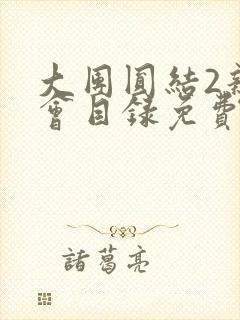 大團圓結2新
會目錄免費
諸葛亮